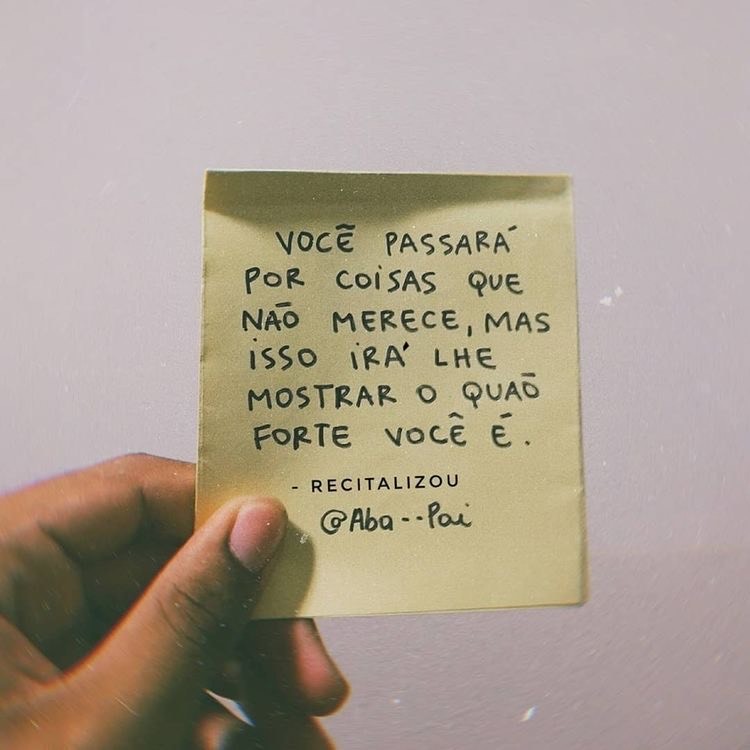 VOCÊ PASSARÁ
POR COISAS QUE
NÃO MERECE, MAS
ISSO IRÁ LHE
MOSTRAR O QUÃO
FORTE VOCÊ É.
- RECITALIZOU
@Aba--Pai